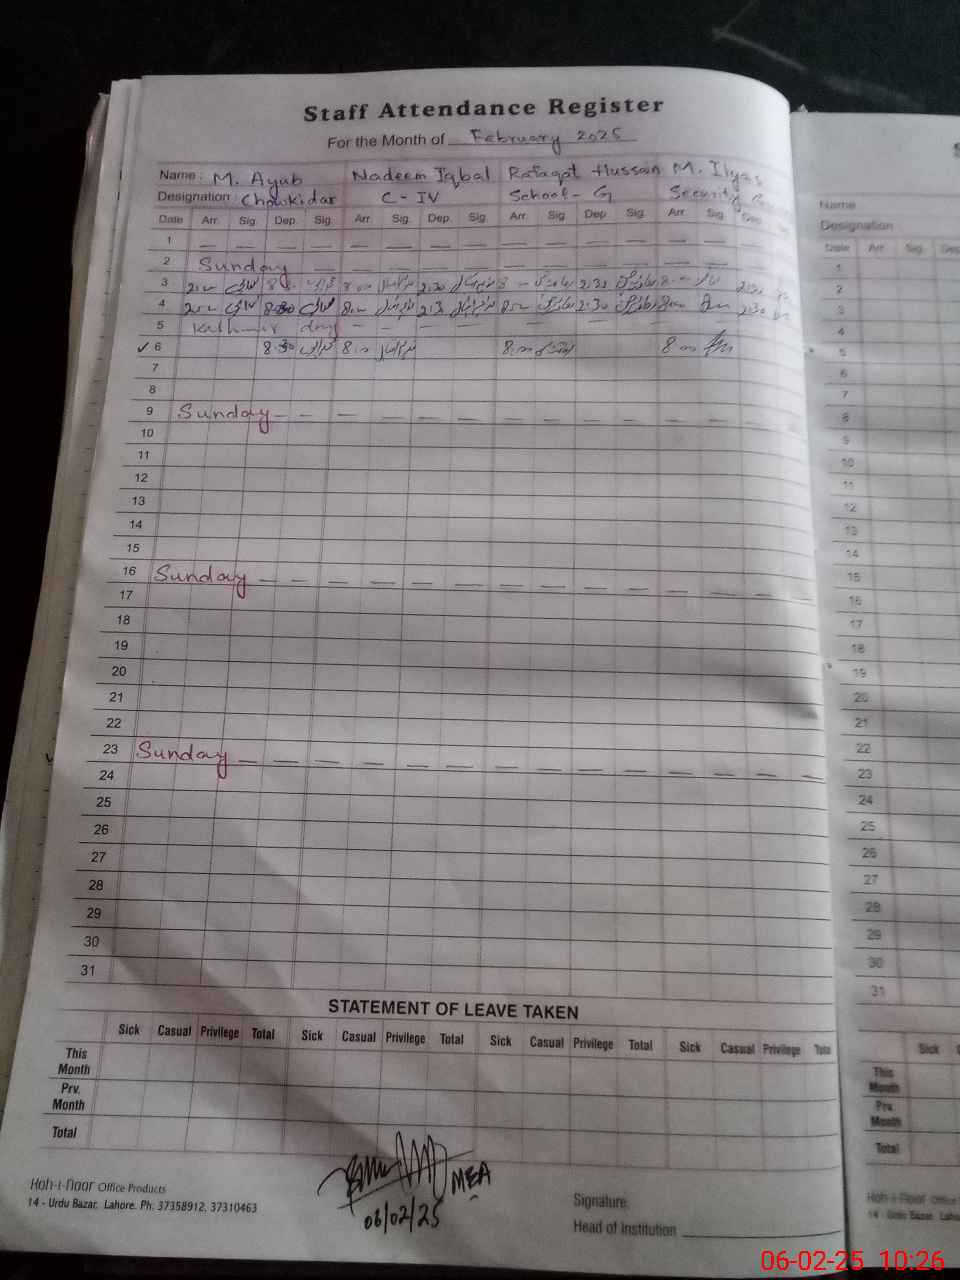 Staff Attendance Register
For the Month of February 2025
Name : M. Ayub Nadeem Iqbal Rafaqat Hussain M. Ilyas
Designation : Chowkidar C - IV School - G Security
Date Arr. Sig. Dep. Sig. Arr. Sig. Dep. Sig. Arr. Sig. Dep. Sig. Arr. Sig. Dep.
1 — — — — — — — — — — — — — —
2 Sunday — — — — — — — — — — —
3 8.00 2.30 8.00 2.30 8.00 2.30
4 8.30 8.00 2.3 8.00 2:30 8.00 2:30
5 Kashmir day — — — — — — — — — —
✓ 6 8.30 8.00 8.00 8.00
7
8
9 Sunday — — — — — — — — — — — —
10
11
12
13
14
15
16 Sunday — — — — — — — — — — — —
17
18
19
20
21
22
23 Sunday — — — — — — — — — — — —
24
25
26
27
28
29
30
31
STATEMENT OF LEAVE TAKEN
Sick Casual Privilege Total Sick Casual Privilege Total Sick Casual Privilege Total Sick Casual Privilege Total
This Month
Prv. Month
Total
MEA
06/02/25
Koh-i-Noor Office Products
14 - Urdu Bazar, Lahore. Ph: 37358912, 37310463
Signature.
Head of Institution
S
Name
Designation
Date Arr. Sig. Dep
1
2
3
4
5
6
7
8
9
10
11
12
13
14
15
16
17
18
19
20
21
22
23
24
25
26
27
28
29
30
31
Sick
This Month
Prv. Month
Total
Koh-i-Noor Office
14 - Urdu Bazar, Laho
06-02-25 10:26